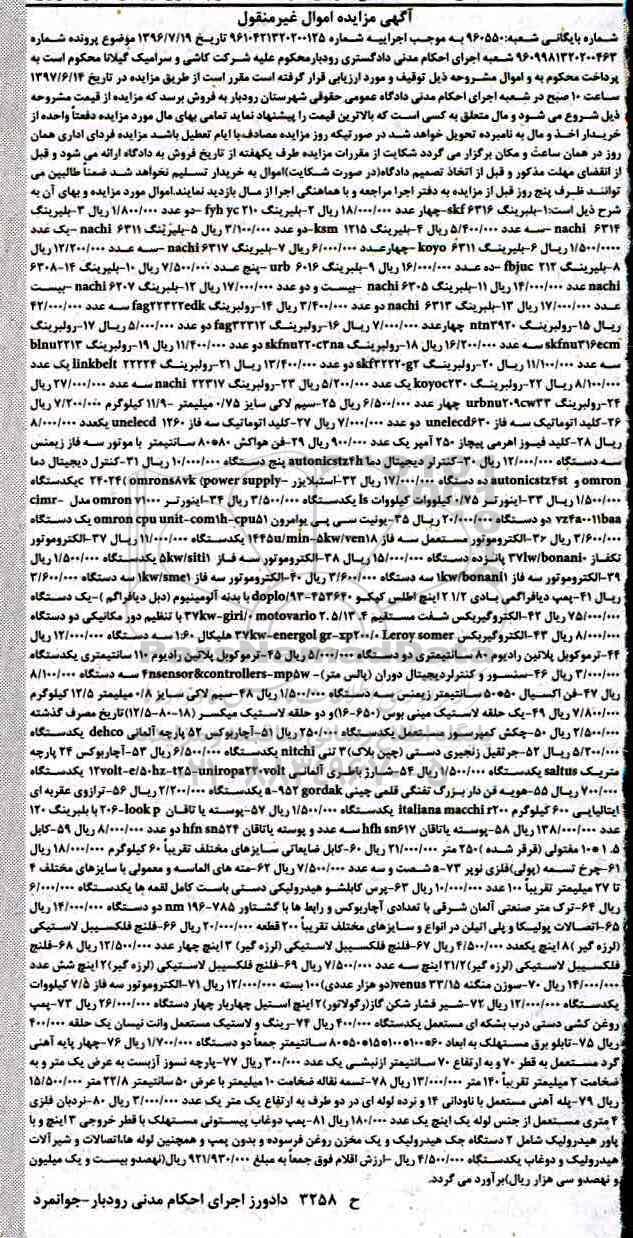 آگهی مزایده اموال غیرمنقول
شماره بایگانی شعبه: ۹۶۰۵۵۰ به موجب اجراییه شماره ۹۶۱۰۴۲۱۳۲۰۲۰۰۱۲۵ تاریخ ۱۳۹۶/۷/۱۹ موضوع پرونده شماره
۹۶۰۹۹۸۱۳۲۰۲۰۰۴۶۳ شعبه اجرای احکام مدنی دادگستری رودبار محکوم علیه شرکت کاشی و سرامیک گیلانا محکوم است به
پرداخت محکوم به و اموال مشروحه ذیل توقیف و مورد ارزیابی قرار گرفته است مقرر است از طریق مزایده در تاریخ ۱۳۹۷/۶/۱۴
ساعت ۱۰ صبح در شعبه اجرای احکام مدنی دادگاه عمومی حقوقی شهرستان رودبار به فروش برسد که مزایده از قیمت مشروحه
ذیل شروع می شود و مال متعلق به کسی است که بالاترین قیمت را پیشنهاد نماید تمامی بهای مال مورد مزایده دفعتا واحده از
خریدار اخذ و مال به نامبرده تحویل خواهد شد در صورتیکه روز مزایده مصادف با ایام تعطیل باشد مزایده فردای اداری همان
روز در همان ساعت و مکان برگزار می گردد شکایت از مقررات مزایده ظرف یکهفته از تاریخ فروش به دادگاه ارائه می شود و قبل
از انقضای مهلت مذکور و قبل از اتخاذ تصمیم دادگاه(در صورت شکایت)اموال به خریدار تسلیم نخواهد شد ضمنا طالبین می
توانند ظرف پنج روز قبل از مزایده به دفتر اجرا مراجعه و با هماهنگی اجرا از مال بازدید نمایند.اموال مورد مزایده و بهای آن به
شرح ذیل است:۱-بلبرینگ skf ۶۳۱۶ -چهار عدد ۱۸/۰۰۰/۰۰۰ ریال ۲-بلبرینگ fyh yc ۲۱۰ -دو عدد ۱/۸۰۰/۰۰۰ ریال ۳-بلبرینگ
nachi ۶۳۱۴ -سه عدد ۵/۴۰۰/۰۰۰ ریال ۴-بلبرینگ ksm ۱۲۱۵ -دو عدد ۳/۱۰۰/۰۰۰ ریال ۵-بلبرینگ nachi ۶۳۱۱ -یک عدد
۱/۵۰۰/۰۰۰ ریال ۶-بلبرینگ koyo ۶۳۱۱ -چهارعدد ۶/۰۰۰/۰۰۰ ریال ۷-بلبرینگ nachi ۶۳۱۷ -سه عدد ۱۲/۲۰۰/۰۰۰ ریال
۸-بلبرینگ fbjuc ۲۱۲ -ده عدد ۱۶/۰۰۰/۰۰۰ ریال ۹-بلبرینگ urb ۶۰۱۶ -پنج عدد ۷/۵۰۰/۰۰۰ ریال ۱۰-بلبرینگ ۱۴-۶۳۰۸
nachi عدد ۱۴/۰۰۰/۰۰۰ ریال ۱۱-بلبرینگ nachi ۶۳۰۵ -بیست و دو عدد ۱۷/۰۰۰/۰۰۰ ریال ۱۲-بلبرینگ nachi ۶۲۰۷ -بیست
عدد ۱۷/۰۰۰/۰۰۰ ریال ۱۳-بلبرینگ nachi ۶۳۱۳ دو عدد ۳/۴۰۰/۰۰۰ ریال ۱۴-رولبرینگ fag۲۲۳۲۲edk سه عدد ۴۲/۰۰۰/۰۰۰
ریال ۱۵-رولبرینگ ntn۳۹۲۰ چهارعدد ۷/۰۰۰/۰۰۰ ریال ۱۶-رولبرینگ fag۲۲۳۱۲ دو عدد ۵/۰۰۰/۰۰۰ ریال ۱۷-رولبرینگ
skfnu۳۱۶ecm سه عدد ۱۶/۲۰۰/۰۰۰ ریال ۱۸-رولبرینگ skfnu۲۲۰c۳na دو عدد ۱۱/۴۰۰/۰۰۰ ریال ۱۹-رولبرینگ blnu۲۲۱۳
سه عدد ۱۱/۱۰۰/۰۰۰ ریال ۲۰-رولبرینگ skf۳۲۲۲۰g۲ دو عدد ۱۳/۴۰۰/۰۰۰ ریال ۲۱-رولبرینگ linkbelt ۲۲۲۲۴ یک عدد
۸/۱۰۰/۰۰۰ ریال ۲۲-رولبرینگ koyoc۲۳۰ یک عدد ۵/۲۰۰/۰۰۰ ریال ۲۳-رولبرینگ nachi ۲۲۳۱۷ سه عدد ۲۷/۰۰۰/۰۰۰ ریال
۲۴-رولبرینگ urbnu۲۰۹cw۳۳ چهار عدد ۶/۵۰۰/۰۰۰ ریال ۲۵-سیم لاکی سایز ۰/۷۵ میلیمتر -۱۱/۹ کیلوگرم ۷/۲۰۰/۰۰۰ ریال
۲۶-کلید اتوماتیک سه فاز unelecd۶۳۰ دو عدد ۷/۰۰۰/۰۰۰ ریال ۲۷-کلید اتوماتیک سه فاز unelecd ۱۲۶۰ یکعدد ۸/۰۰۰/۰۰۰
ریال ۲۸-کلید فیوز اهرمی پیچاز ۲۵۰ آمپر یک عدد ۹۰۰/۰۰۰ ریال ۲۹-فن هواکش ۸۰*۸۰ سانتیمتر با موتور سه فاز زیمنس
سه دستگاه ۱۲/۰۰۰/۰۰۰ ریال ۳۰-کنترلر دیجیتال دما autonicstz۴h پنج دستگاه ۱۰/۰۰۰/۰۰۰ ریال ۳۱-کنترل دیجیتال دما
omron و autonicstz۴st ده دستگاه ۱۷/۰۰۰/۰۰۰ ریال ۳۲-استبلایزر omrons۸vk (power supply-c ۲۴۰۲۴( یکدستگاه
۱/۵۰۰/۰۰۰ ریال ۳۳-اینورتر ۰/۷۵ کیلووات کیلووات ls یکدستگاه ۳/۵۰۰/۰۰۰ ریال ۳۴-اینورتر omron v۱۰۰۰ مدل cimr-
vz۴a۰۰۱۱baa دو دستگاه ۲۰/۰۰۰/۰۰۰ ریال ۳۵-یونیت سی پی یوامرون omron cpu unit-com۱h-cpu۵۱ یک دستگاه
۲/۰۰۰/۰۰۰ ۳۶-الکتروموتور مستعمل سه فاز ۱۴۴۵u/min-۵kw/ven۱۸ یکدستگاه ۱۱/۰۰۰/۰۰۰ ریال ۳۷-الکتروموتور
تکفاز ۳۷lw/bonani۰ پانزده دستگاه ۱۵/۰۰۰/۰۰۰ ریال ۳۸-الکتروموتور سه فاز ۵kw/siti۱ یکدستگاه ۱/۵۰۰/۰۰۰ ریال
۳۹-الکتروموتور سه فاز ۱kw/bonani۱ سه دستگاه ۳/۶۰۰/۰۰۰ ریال ۴۰-الکتروموتور سه فاز ۱kw/sme۱ سه دستگاه ۳/۶۰۰/۰۰۰
ریال ۴۱-پمپ دیافراگمی بادی ۲ ۱/۲ اینچ اطلس کپکو doplo/۹۳-۴۵۳۶۴۰ با بدنه آلومینیوم (دبل دیافراگم )-یک دستگاه
۷۵/۰۰۰/۰۰۰ ریال ۴۲-الکتروگیربکس شفت مستقیم ۳۷kw-giri/۰ motovario ۲.۵/۱۳.۴ با تنظیم دور مکانیکی دو دستگاه
۸/۰۰۰/۰۰۰ ریال ۴۳-الکتروگیربکس ۳۷kw-energol gr-xp۲۰۰/۰ Leroy somer هلیکال ۱:۶۰ سه دستگاه ۱۲/۰۰۰/۰۰۰ ریال
۴۴-ترموکوبل پلاتین رادیوم ۸۰ سانتیمتری دو دستگاه ۵/۰۰۰/۰۰۰ ریال ۴۵-ترموکوبل پلاتین رادیوم ۱۱۰ سانتیمتری یکدستگاه
۳/۰۰۰/۰۰۰ ریال ۴۶-سنسور و کنترلردیجیتال دوران (پالس متر)- ۴nsensor&controllers-mp۵w سه دستگاه ۸/۱۰۰/۰۰۰
ریال ۴۷-فن اکسیال ۵۰*۵۰ سانتیمتر زیمنس سه دستگاه ۱/۵۰۰/۰۰۰ ریال ۴۸-سیم لاکی سایز ۰/۸ میلیمتر ۱۲/۵ کیلوگرم
۷/۸۰۰/۰۰۰ ریال ۴۹-یک حلقه لاستیک مینی بوس (۶۵۰-۱۶)و دو حلقه لاستیک میکسر (۱۸-۸۰-۱۲/۵)تاریخ مصرف گذشته
۲/۵۰۰/۰۰۰ ریال ۵۰-چکش کمپرسور مستعمل یکدستگاه ۲۵۰/۰۰۰ ریال ۵۱-آچاربوکس ۵۲ پارچه آلمانی dehco یکدستگاه
۵/۲۰۰/۰۰۰ ریال ۵۲-جرثقیل زنجیری دستی (چین بلاک)۳ تنی nitchi یکدستگاه ۶/۵۰۰/۰۰۰ ریال ۵۳-آچاربوکس ۲۴ پارچه
متریک saltus یکدستگاه ۱/۵۰۰/۰۰۰ ریال ۵۴-شارژ باطری آلمانی ۱۲volt-e/۵۰hz-t۲۵-uniropa۲۲۰volt یکدستگاه
۷۰۰/۰۰۰ ریال ۵۵-هویه فن دار بزرگ تفنگی قلمی چینی a-۹۵۲ gordak یکدستگاه ۲/۲۰۰/۰۰۰ ریال ۵۶-ترازوی عقربه ای
ایتالیایی ۶۰۰ کیلوگرم italiana macchi r۲۰۰ یکدستگاه ۱/۵۰۰/۰۰۰ ریال ۵۷-پوسته یا تاقان ۲۰۶-look p با بلبرینگ ۱۲۰
عدد ۱۳۸/۰۰۰/۰۰۰ ریال ۵۸-پوسته یاتاقان hfh sn۶۱۷ سه عدد و پوسته یاتاقان hfn sn۵۲۴ دو عدد ۸/۰۰۰/۰۰۰ ریال ۵۹-کابل
۱.۵*۱۰ مفتولی (قرقر شده )۲۵۰ متر ۲۱/۰۰۰/۰۰۰ ریال ۶۰-کابل ضایعاتی سایزهای مختلف تقریباً ۶۰ کیلوگرم ۱۸/۰۰۰/۰۰۰ ریال
۶۱-چرخ تسمه (پولی)فلزی نوپر ۷۳-a شصت و سه عدد ۷/۵۰۰/۰۰۰ ریال ۶۲-مته های الماسه و معمولی با سایزهای مختلف ۴
تا ۲۷ میلیمتر تقریباً ۱۰۰ عدد ۱۰/۰۰۰/۰۰۰ ریال ۶۳-پرس کابلشو هیدرولیکی دستی باست کامل لقمه ها یکدستگاه ۶/۰۰۰/۰۰۰
ریال ۶۴-ترک متر صنعتی آلمان شرقی با تعدادی آچاربوکس و رابط ها با گشتاور nm ۱۹۶-۷۸۵ دو دستگاه ۱۴/۰۰۰/۰۰۰ ریال
۶۵-اتصالات پولیکا و پلی اتیلن در انواع و سایزهای مختلف تقریباً ۲۰۰ قطعه ۲۰/۰۰۰/۰۰۰ ریال ۶۶-فلنج فلکسیبل لاستیکی
(لرزه گیر )۸ اینچ یکعدد ۴/۵۰۰/۰۰۰ ریال ۶۷-فلنج فلکسیبل لاستیکی (لرزه گیر) ۳ اینچ چهار عدد ۱۲/۵۰۰/۰۰۰ ریال ۶۸-فلنج
فلکسیبل لاستیکی (لرزه گیر)۲۱/۲ اینچ سه عدد ۷/۵۰۰/۰۰۰ ریال ۶۹-فلنج فلکسیبل لاستیکی (لرزه گیر)۲ اینچ شش عدد
۱۴/۰۰۰/۰۰۰ ریال ۷۰-سوزن منگنه venus ۲۳/۱۵(دو هزار عددی)۱۰۰ بسته ۱۲/۰۰۰/۰۰۰ ریال ۷۱-الکتروموتور سه فاز ۷/۵ کیلووات
یکدستگاه ۱۲/۰۰۰/۰۰۰ ریال ۷۲-شیر فشار شکن گاز(رگولاتور)۲ اینچ استیل چهاربار چهار دستگاه ۲۶/۰۰۰/۰۰۰ ریال ۷۳-پمپ
روغن کشی دستی درب بشکه ای مستعمل یکدستگاه ۴۰۰/۰۰۰ ریال ۷۴-رینگ و لاستیک مستعمل وانت نیسان یک حلقه ۴۰۰/۰۰۰
ریال ۷۵-تابلو برق مستهلک به ابعاد ۶۰*۱۰۰*۱۰۰*۱۵۰*۵۰*۸۰ سانتیمتر جمعاً دو دستگاه ۱/۷۰۰/۰۰۰ ریال ۷۶-چهار پایه آهنی
گرد مستعمل به قطر ۷۰ و به ارتفاع ۷۰ سانتیمتر ازنبشی یک عدد ۳۰۰/۰۰۰ ریال ۷۷-پارچه نسوز آزبست به عرض یک متر و به
ضخامت ۲ میلیمتر تقریباً ۱۴۰ متر ۱۳/۰۰۰/۰۰۰ ریال ۷۸-تسمه نقاله ضخامت ۱۰ میلیمتر با عرض ۵۰ سانتیمتر ۲۲/۸ متر ۱۵/۵۰۰/۰۰۰
ریال ۷۹-پله آهنی مستعمل با ناودانی ۱۴ و نرده لوله ای در دو طرف به ارتفاع یک متر یک عدد ۳/۰۰۰/۰۰۰ ریال ۸۰-نردبان فلزی
۴ متری مستعمل از جنس لوله یک اینچ یک عدد ۱۸۰/۰۰۰ ریال ۸۱-پمپ دوغاب پیستونی مستهلک با قطر خروجی ۳ اینچ و با
پاور هیدرولیک شامل ۲ دستگاه جک هیدرولیک و یک مخزن روغن فرسوده و بدون پمپ و همچنین لوله ها،اتصالات و شیرآلات
هیدرولیک و دوغاب یکدستگاه ۴/۵۰۰/۰۰۰ ریال -ارزش اقلام فوق جمعاً به مبلغ ۹۲۱/۹۳۰/۰۰۰ ریال(نهصدو بیست و یک میلیون
و نهصدو سی هزار ریال)برآورد می گردد.
ح ۳۲۵۸ دادورز اجرای احکام مدنی رودبار-جوانمرد